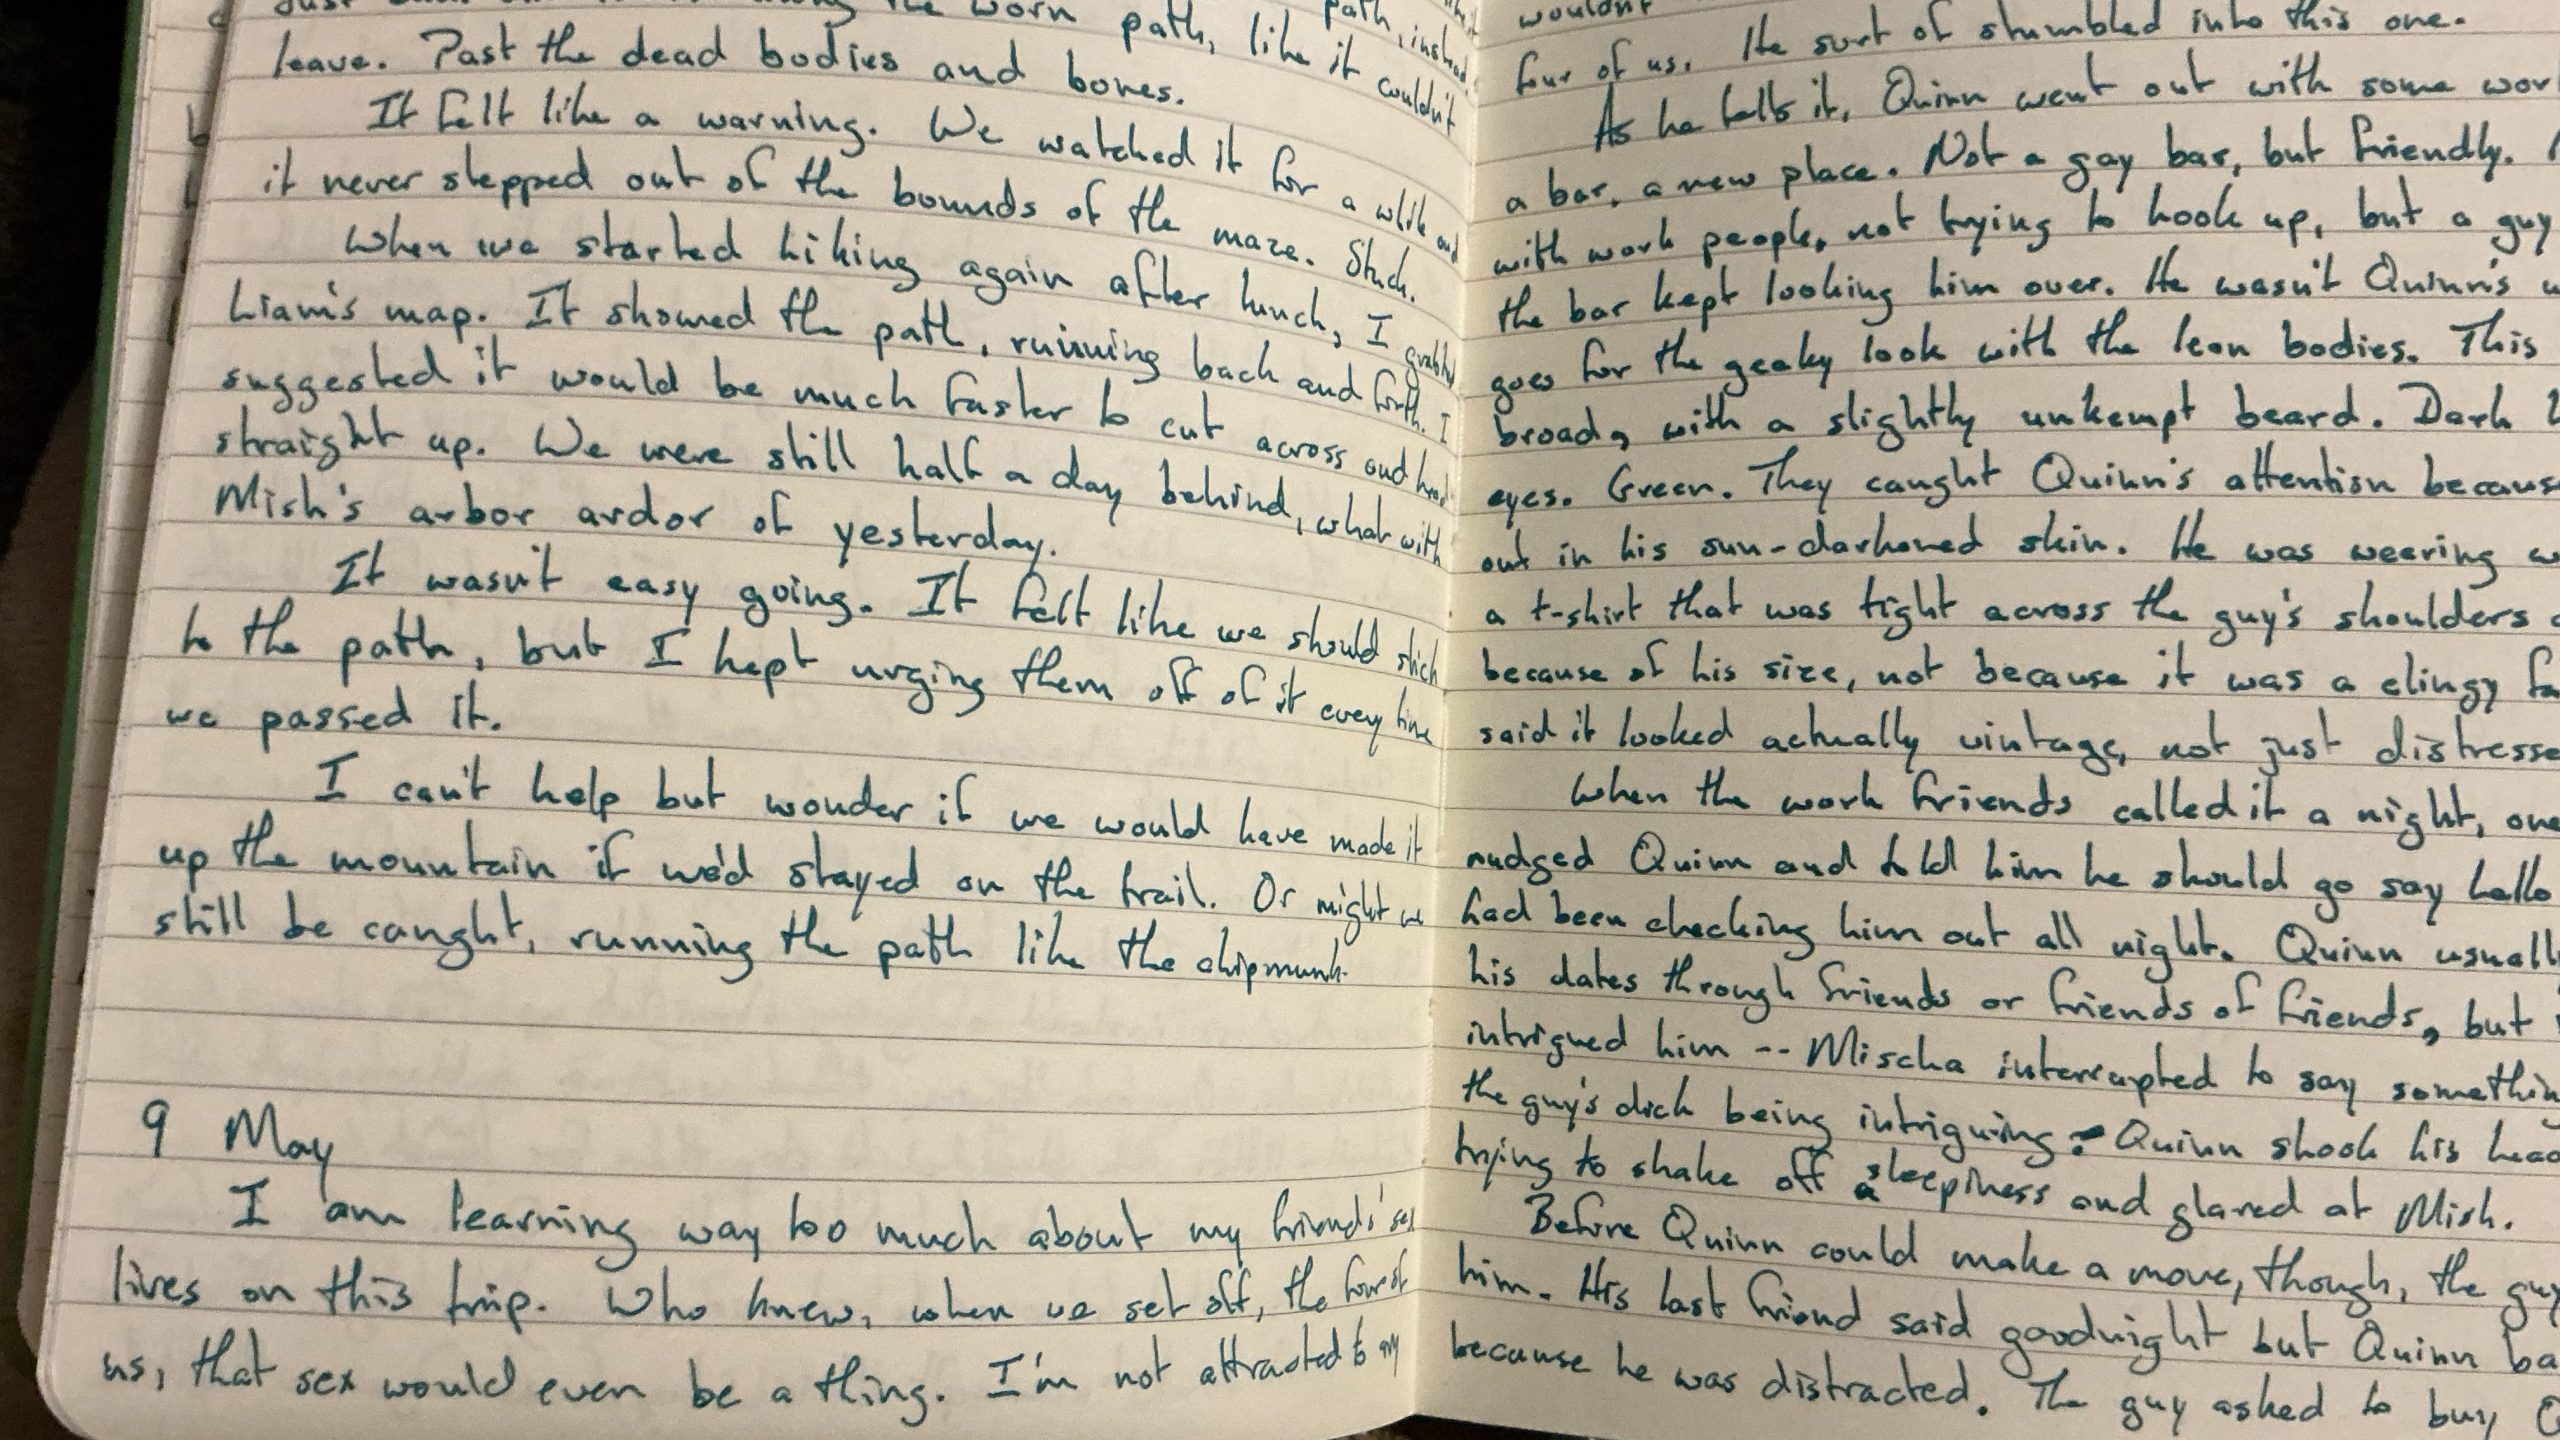 the worn path, like it couldn't
leave. Past the dead bodies and bones.
It felt like a warning. We watched it for a while and
it never stepped out of the bounds of the maze. Stuck.
When we started hiking again after lunch, I grabbed
Liam's map. It showed the path, running back and forth. I
suggested it would be much faster to cut across and head
straight up. We were still half a day behind, what with
Mish's arbor ardor of yesterday.
It wasn't easy going. It felt like we should stick
to the path, but I kept urging them off of it every time
we passed it.
I can't help but wonder if we would have made it
up the mountain if we'd stayed on the trail. Or might we
still be caught, running the path like the chipmunk.
9 May
I am learning way too much about my friends' sex
lives on this trip. Who knew, when we set off, the four of
us, that sex would even be a thing. I'm not attracted to any
wouldn't
four of us. He sort of stumbled into this one.
As he tells it, Quinn went out with some wor
a bar, a new place. Not a gay bar, but friendly.
with work people, not trying to hook up, but a guy
the bar kept looking him over. He wasn't Quinn's u
goes for the geeky look with the lean bodies. This
broad, with a slightly unkempt beard. Dark
eyes. Green. They caught Quinn's attention because
out in his sun-darkened skin. He was wearing w
a t-shirt that was tight across the guy's shoulders
because of his size, not because it was a clingy fa
said it looked actually vintage, not just distresse
When the work friends called it a night, one
nudged Quinn and told him he should go say hello
had been checking him out all night. Quinn usuall
his dates through friends or friends of friends, but
intrigued him -- Mischa interrupted to say somethin
the guy's dick being intriguing. Quinn shook his head
trying to shake off sleepiness and glared at Mish.
Before Quinn could make a move, though, the guy
him. His last friend said goodnight but Quinn ba
because he was distracted. The guy asked to buy Q